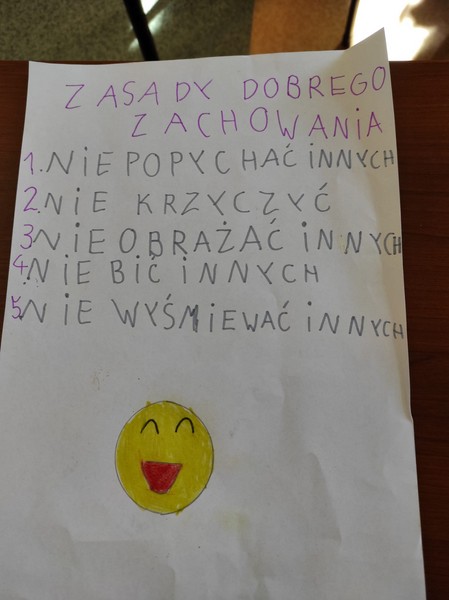 ZASADY DOBREGO
ZACHOWANiA
1. NiE POPYCHAĆ iNNYCH
2. NiE KRZYCZYĆ
3. NiE OBRAŻAĆ iNNYCH
4. NiE BiĆ iNNYCH
5. NiE WYŚMiEWAĆ iNNYCH